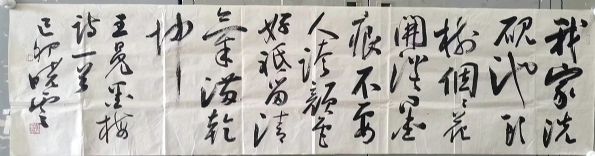 我家洗
砚池头
树個々花
開淡墨
痕不要
人誇顔色
好祇留清
氣满乾
坤
王冕墨梅
诗一首
己卯曉雲